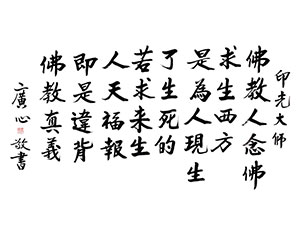 印光大师
佛教人念佛
求生西方
是為人現生
了生死的
若求来生
人天福報
即是違背
佛教真義
廣心敬書